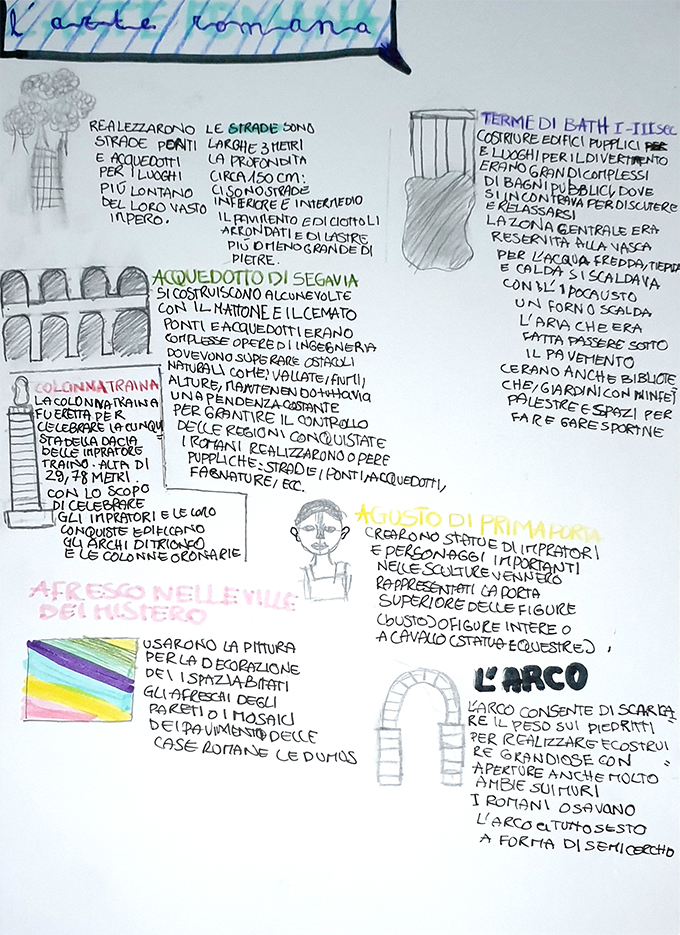 L'arte romana
REALEZZARONO
STRADE PONTI
E ACQUEDOTTI
PER I LUOGHI
PIÙ LONTANO
DEL LORO VASTO
IMPERO.
LE STRADE SONO
LARGHE 3 METRI
LA PROFONDITA
CIRCA 150 CM:
CI SONO STRADE
INFERIORE E INTERMEDIO
IL PAVIMENTO E DI CIOTTOLI
ARRONDATI E DI LASTRE
PIÙ O MENO GRANDE DI
PIETRE.
TERME DI BATH I-III SEC
COSTRIURE EDIFICI PUPPLICI PER
E LUOGHI PER IL DIVERTIMENTO
ERANO GRANDI COMPLESSI
DI BAGNI PUBBLICI, DOVE
SI INCONTRAVA PER DISCUTERE
E RELASSARSI
LA ZONA CENTRALE ERA
RESERVITA ALLA VASCA
PER L'ACQUA FREDDA, TIEPIDA
E CALDA SI SCALDAVA
CON L'IPOCAUSTO
UN FORNO SCALDA
L'ARIA CHE ERA
FATTA PASSERE SOTTO
IL PAVEMENTO
CERANO ANCHE BIBLIOTE
CHE, GIARDINI CON NINFEI
PALESTRE E SPAZI PER
FARE GARE SPORTIVE
ACQUEDOTTO DI SEGAVIA
SI COSTRUISCONO ALCUNE VOLTE
CON IL MATTONE E IL CEMATO
PONTI E ACQUEDOTTI ERANO
COMPLESSE OPERE DI INGEGNERIA
DOVEVONO SUPERARE OSTACOLI
NATURALI COME; VALLATE, FIUMI,
ALTURE, MANTENENDO TUTTAVIA
UNA PENDENZA COSTANTE
PER GRANTIRE IL CONTROLLO
DELLE REGIONI CONQUISTATE
I ROMANI REALIZZARONO OPERE
PUPPLICHE: STRADE, PONTI, ACQUEDOTTI,
FABNATURE, ECC.
COLONNA TRAINA
LA COLONNA TRAINA
FU ERETTA PER
CELEBRARE LA CUNQUI
STA DELLA DACIA
DELLE IMPRATORE
TRAINO. ALTA DI
29,78 METRI.
CON LO SCOPO
DI CELEBRARE
GLI IMPRATORI E LE LORO
CONQUISTE EDIFICANO
GLI ARCHI DI TRIONFO
E LE COLONNE ORONARIE
AGUSTO DI PRIMA PORTA
CREARONO STATUE DI IMPRATORI
E PERSONAGGI IMPORTANTI
NELLE SCULTURE VENNERO
RAPPRESENTATI LA PORTA
SUPERIORE DELLE FIGURE
(BUSTO) O FIGURE INTERE O
A CAVALLO (STATUA EQUESTRE).
AFRESCO NELLE VILLE
DEI MISTERO
USARONO LA PITTURA
PER LA DECORAZIONE
DEI SPAZI ABITATI
GLI AFRESCHI DEGLI
PARETI O I MOSAICI
DEI PAVIMENTO DELLE
CASE ROMANE LE DUMUS
L'ARCO
L'ARCO CONSENTE DI SCARICA
RE IL PESO SUI PIEDRITTI
PER REALIZZARE E COSTRUI
RE GRANDIOSE CON
APERTURE ANCHE MOLTO
AMBIE SUI MURI
I ROMANI OSAVANO
L'ARCO A TUTTO SESTO
A FORMA DI SEMICERCHIO